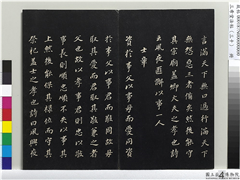 言滿天下無口過行滿天下
無怨惡三者備矣然後能守
其宗廟蓋卿大夫之孝也詩
云夙夜匪懈以事一人
士章
資於事父以事母而愛同資
於事父以事君而敬同故母
取其愛而君取其敬兼之者
父也故以孝事君則忠以敬
事長則順忠順不失以事其
上然後能保其祿位而守其
祭祀蓋士之孝也詩曰夙興夜